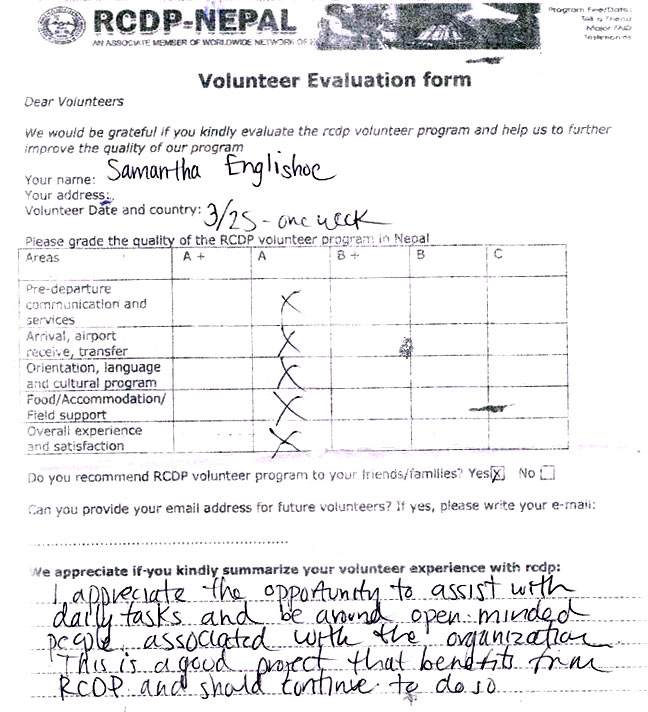 RCDP-NEPAL
AN ASSOCIATE MEMBER OF WORLDWIDE NETWORK OF
Program Fee/Date:
Tell a Friend
Major /AID
Testimonies
Volunteer Evaluation form
Dear Volunteers
We would be grateful if you kindly evaluate the rcdp volunteer program and help us to further
improve the quality of our program
Your name: Samantha Englishoe
Your address:
Volunteer Date and country: 3/25 - one week
Please grade the quality of the RCDP volunteer program in Nepal
Areas A + A B + B C
Pre-departure
communication and
services X
Arrival, airport
receive, transfer X
Orientation, language
and cultural program X
Food/Accommodation/
Field support X
Overall experience
and satisfaction X
Do you recommend RCDP volunteer program to your friends/families? Yes X No
Can you provide your email address for future volunteers? If yes, please write your e-mail:
We appreciate if you kindly summarize your volunteer experience with rcdp:
I appreciate the opportunity to assist with
daily tasks and be around open minded
people associated with the organization
This is a good project that benefits from
RCDP and should continue to do so